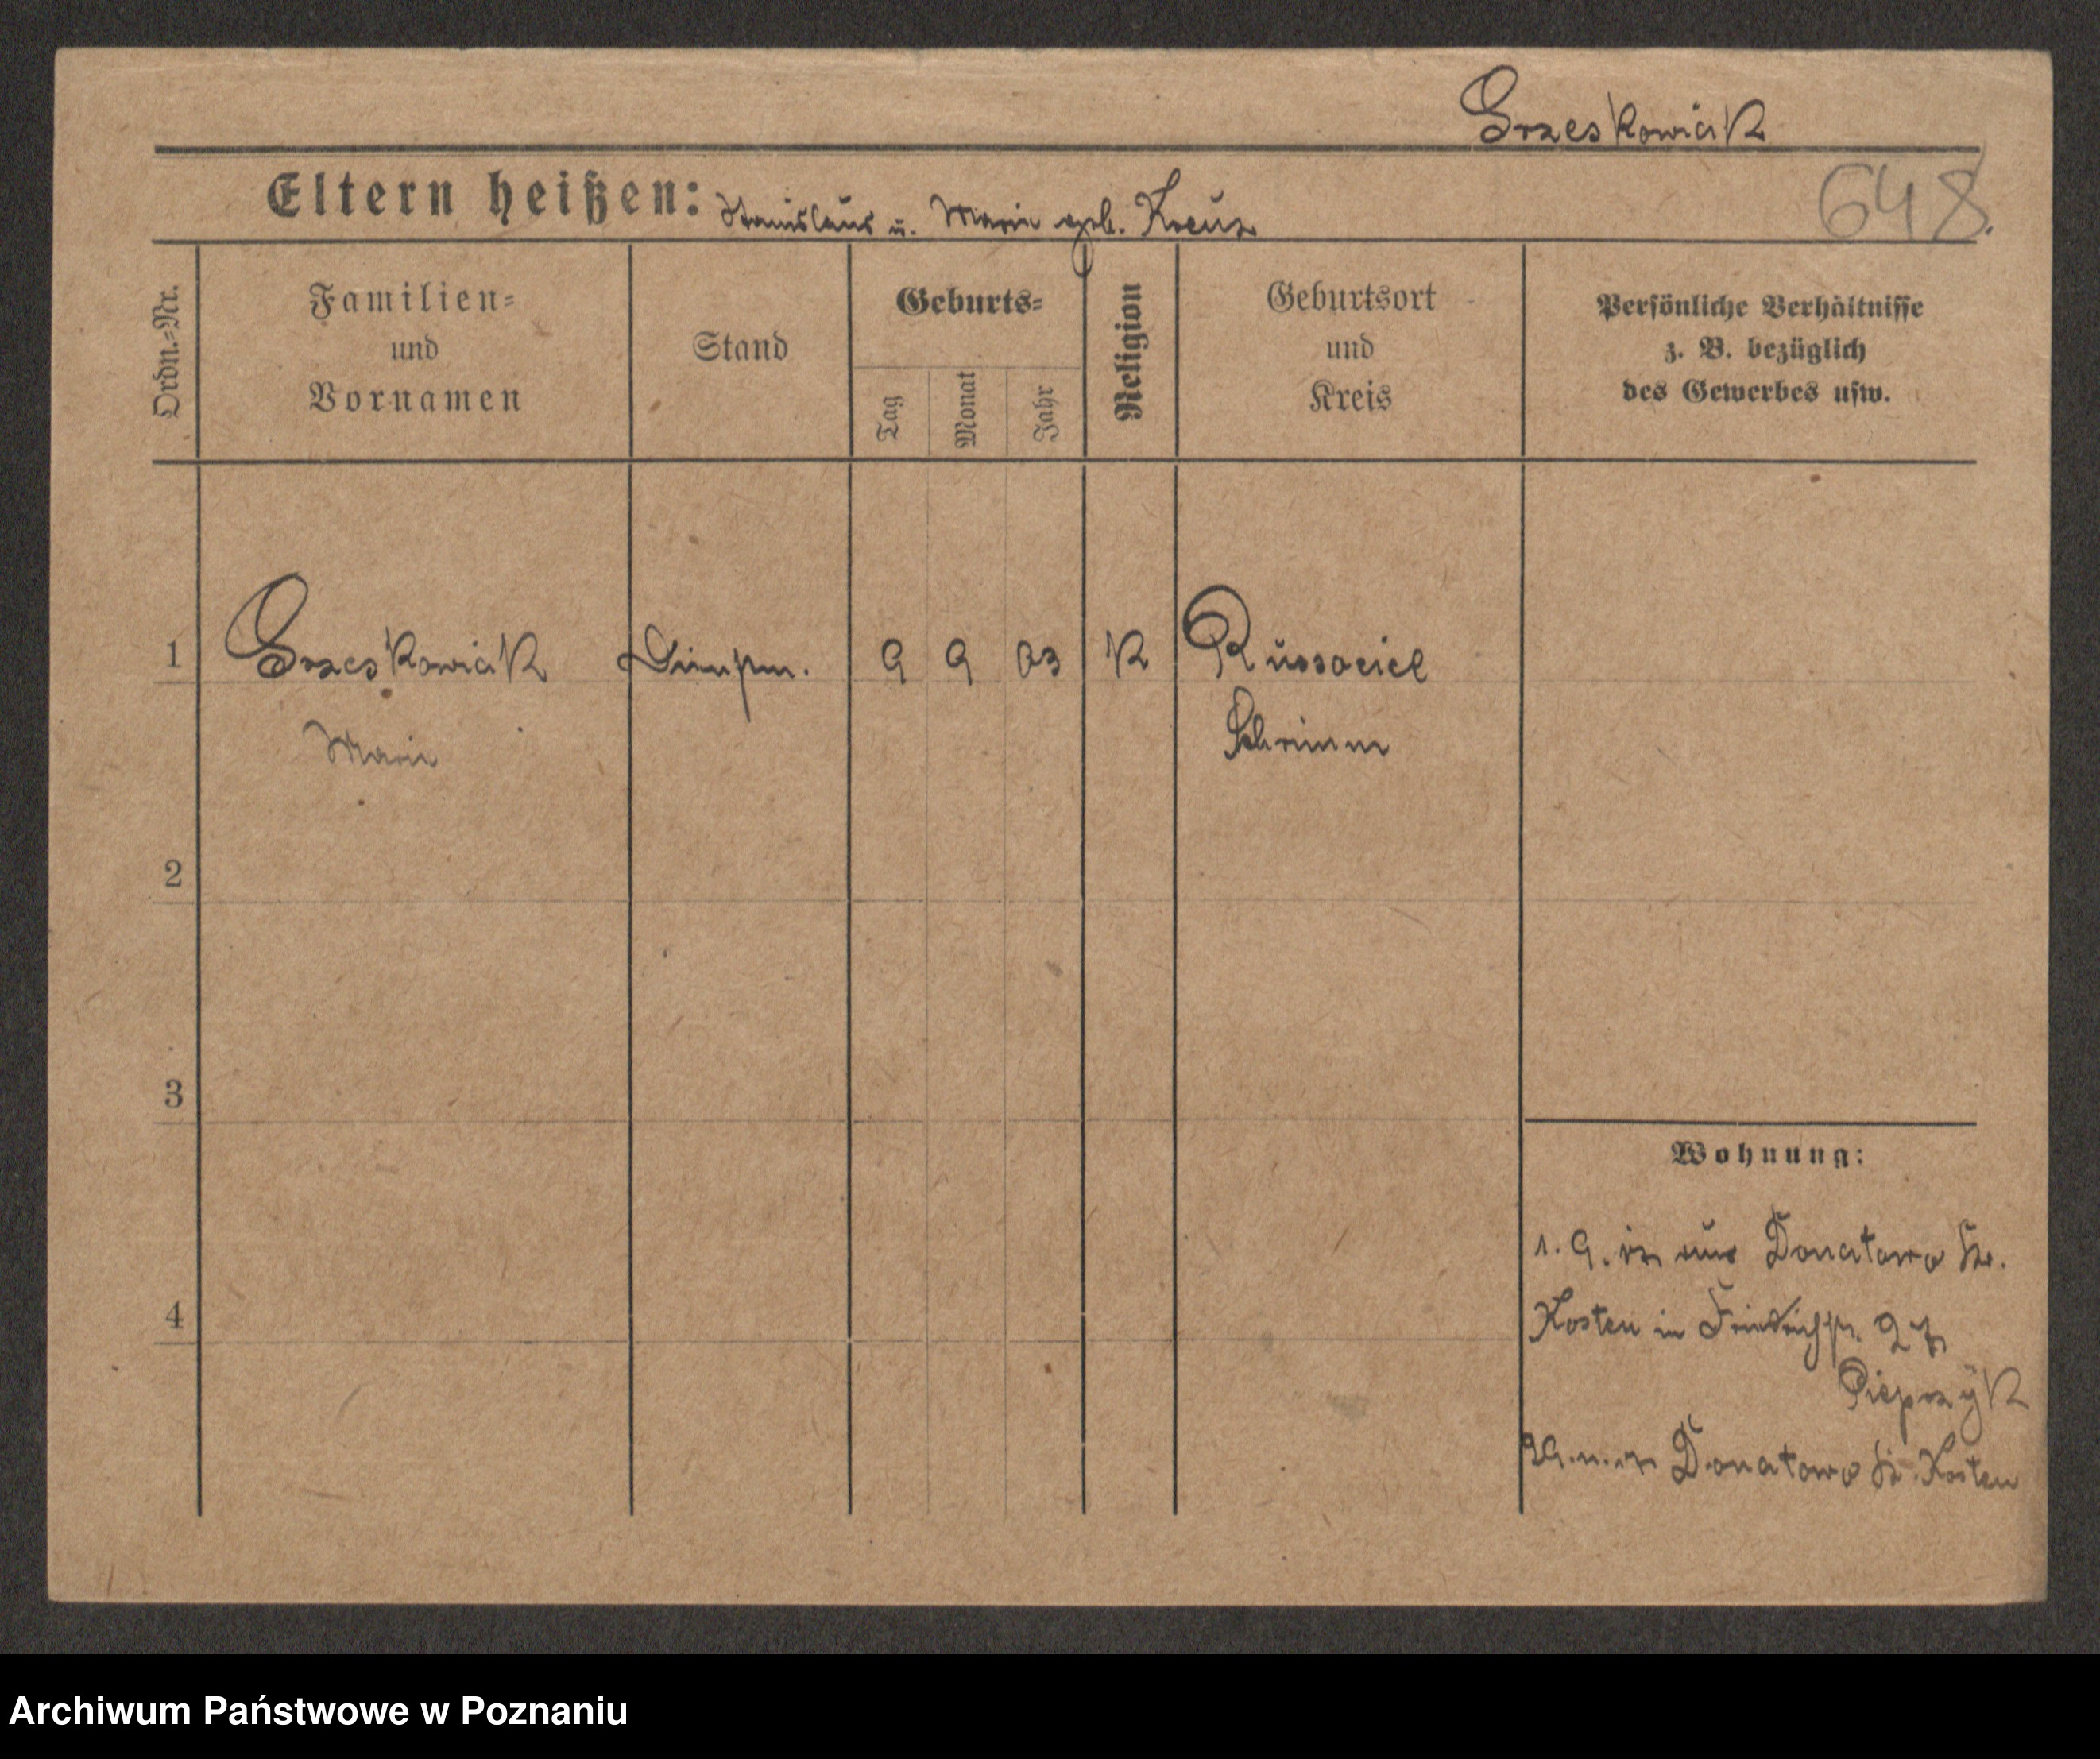 Grzeskowiak
Eltern heißen: Stanislaus u. Marie geb. Kreuz
648.
Ordn.=Nr.
Familien=
und
Vornamen
Stand
Geburts=
Tag
Monat
Jahr
Religion
Geburtsort
und
Kreis
Persönliche Verhältnisse
z. B. bezüglich
des Gewerbes usw.
1 Grzeskowiak 9 9 03 K Russociel
Marie Schrimm
2
3
4
Wohnung:
1. 9. aus Donatowo Kr.
Kosten in Friedrichstr. 27
Piepszÿk
29. Donatowo Kr. Kosten
Archiwum Państwowe w Poznaniu